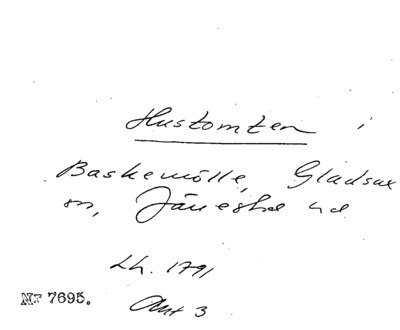 Hustomten i
Baskemölle, Gladsax
sn, Järrestads hd
Lh. 1791
Ant 3
Nr 7695.